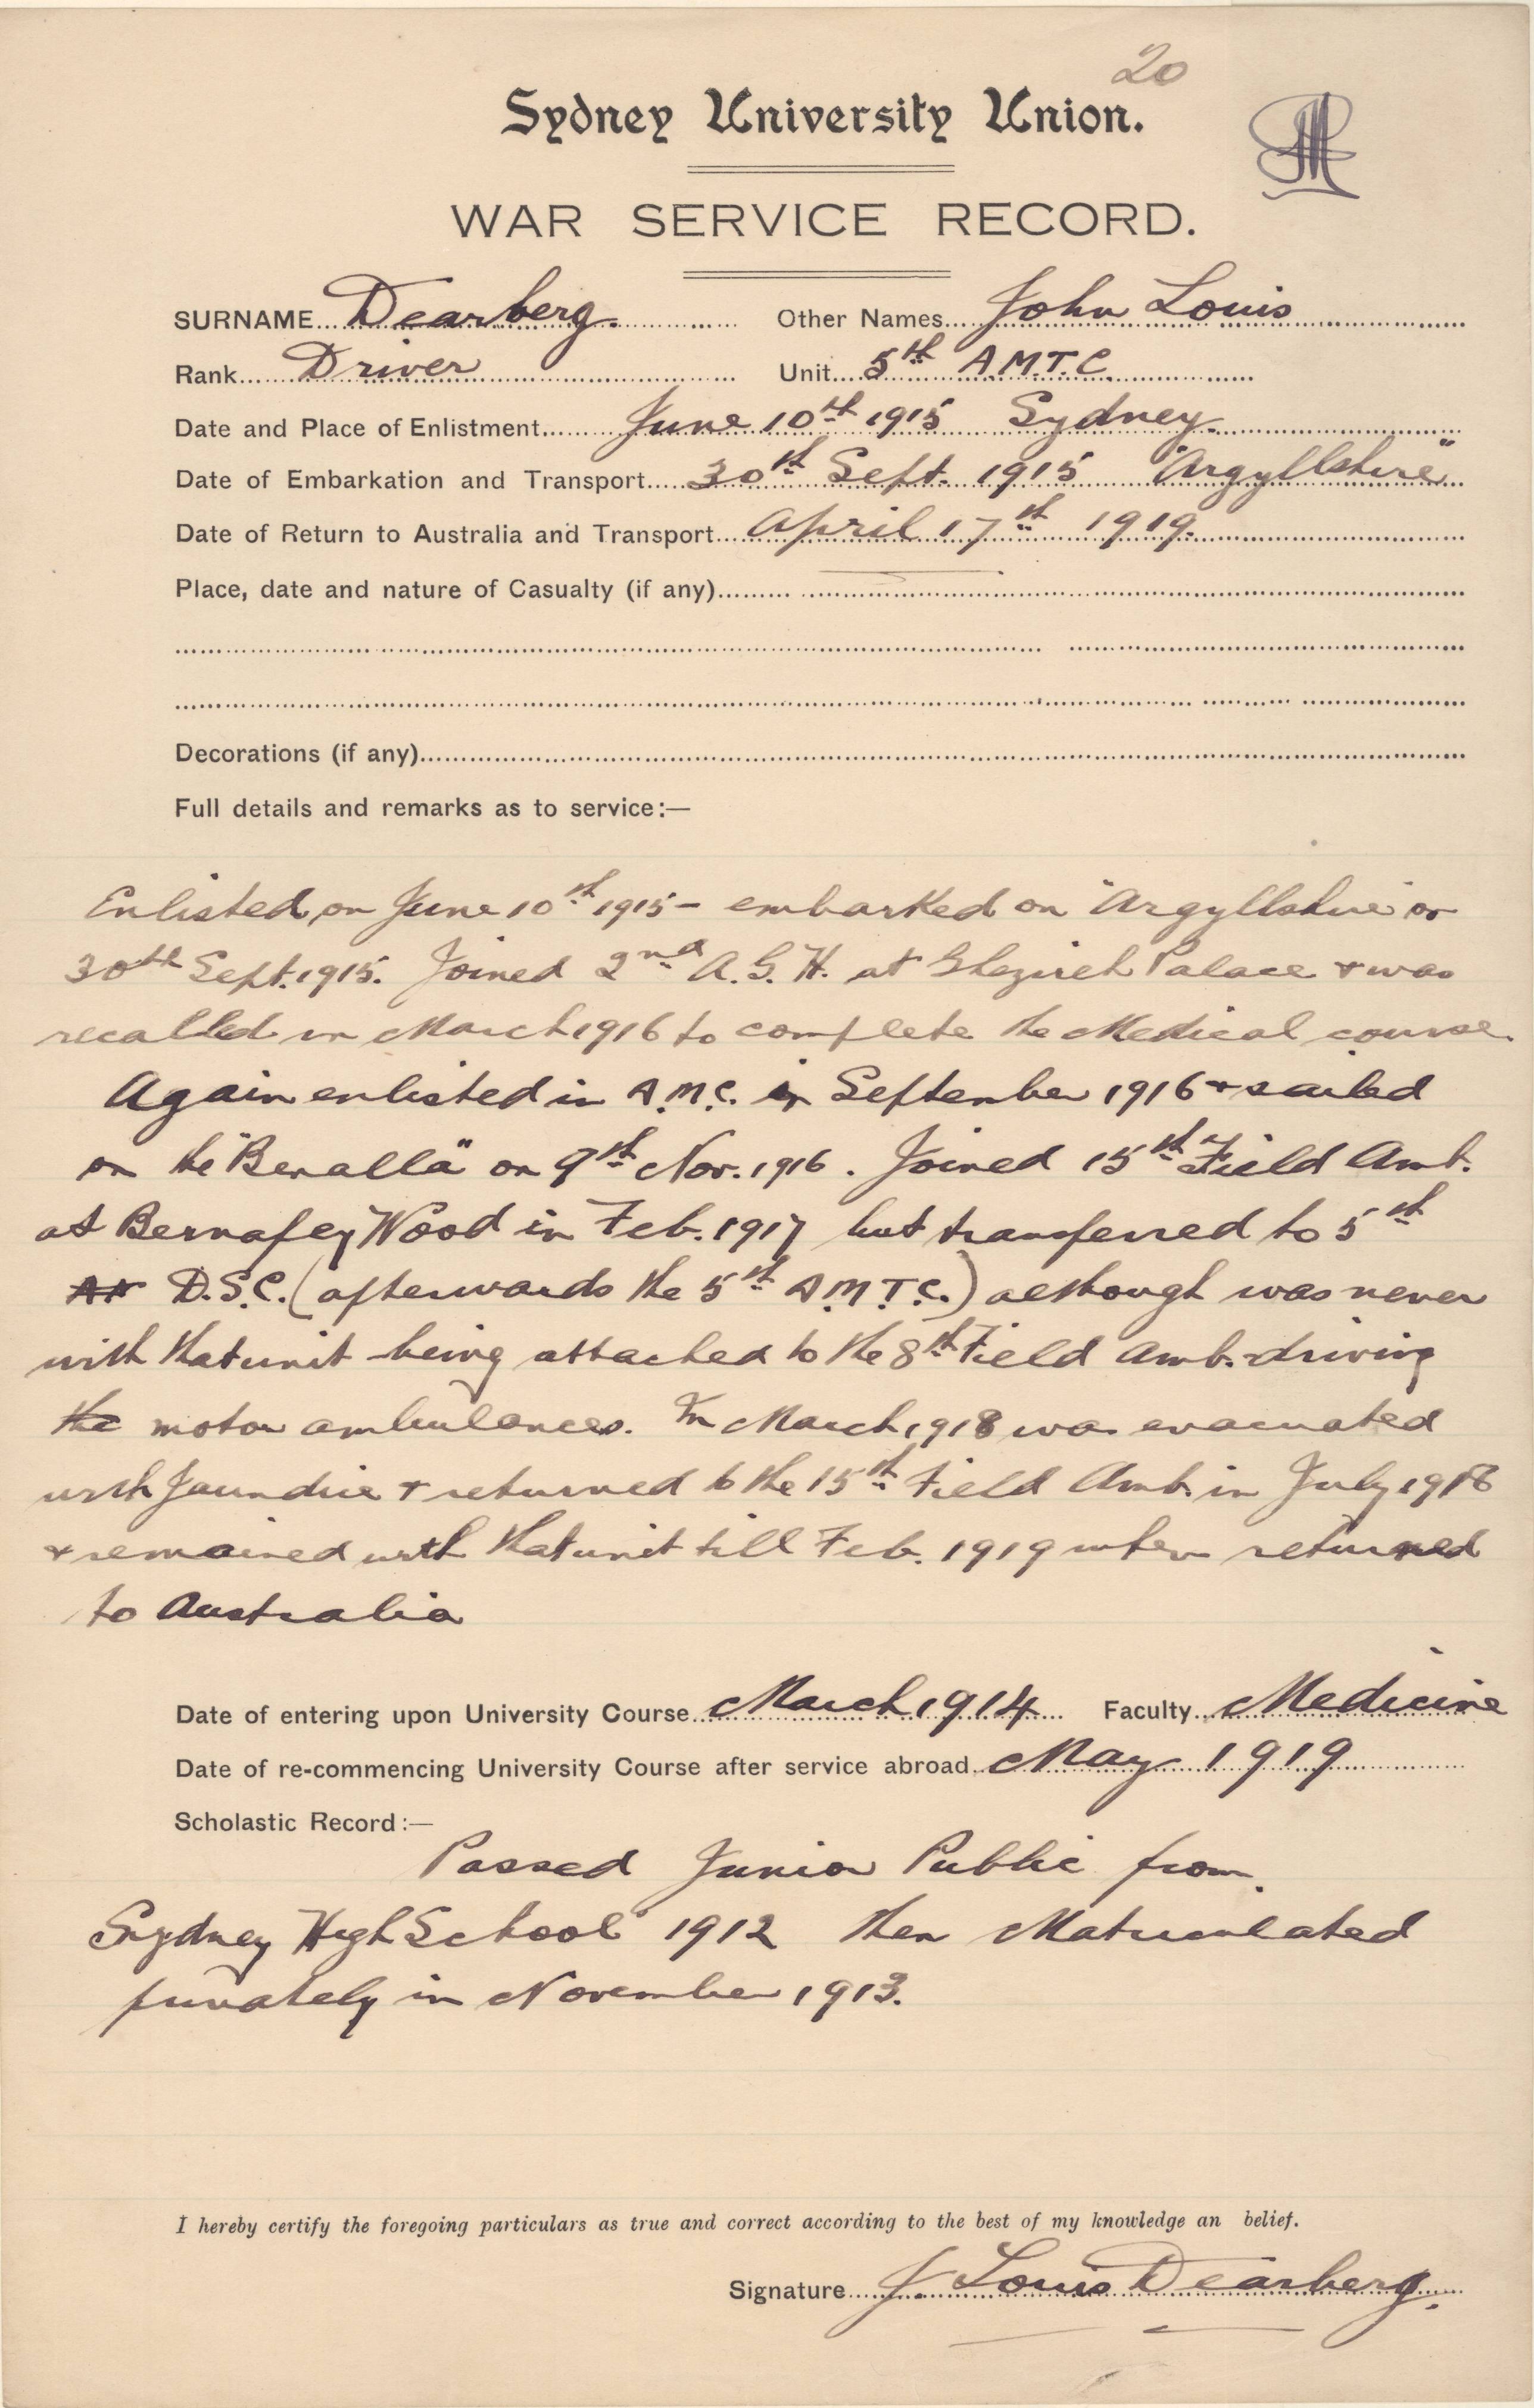 20
Sydney University Union.
WAR SERVICE RECORD.
SURNAME Dearberg. Other Names John Louis
Rank Driver Unit 5th A.M.T.C.
Date and Place of Enlistment June 10th 1915 Sydney.
Date of Embarkation and Transport 30th Sept. 1915 "Argyllshire"
Date of Return to Australia and Transport April 17th 1919.
Place, date and nature of Casualty (if any)
Decorations (if any)
Full details and remarks as to service:—
Enlisted on June 10th 1915 – embarked on "Argyllshire" on
30th Sept. 1915. Joined 2nd A.G.H. at Ghezireh Palace & was
recalled in March 1916 to complete the Medical course.
Again enlisted in A.M.C. in September 1916 & sailed
on the "Benalla" on 9th Nov. 1916. Joined 15th Field Amb.
at Bernafey Wood in Feb. 1917 but transferred to 5th
D.S.C. (afterwards the 5th A.M.T.C.) although was never
with that unit being attached to the 8th Field Amb. driving
the motor ambulances. In March 1918 was evacuated
with Jaundice & returned to the 15th Field Amb. in July 1918
& remained with that unit till Feb. 1919 when returned
to Australia
Date of entering upon University Course March 1914 Faculty Medicine
Date of re-commencing University Course after service abroad May 1919
Scholastic Record:—
Passed Junior Public from
Sydney High School 1912 then Matriculated
privately in November 1913.
I hereby certify the foregoing particulars as true and correct according to the best of my knowledge an belief.
Signature J. Louis Dearberg.